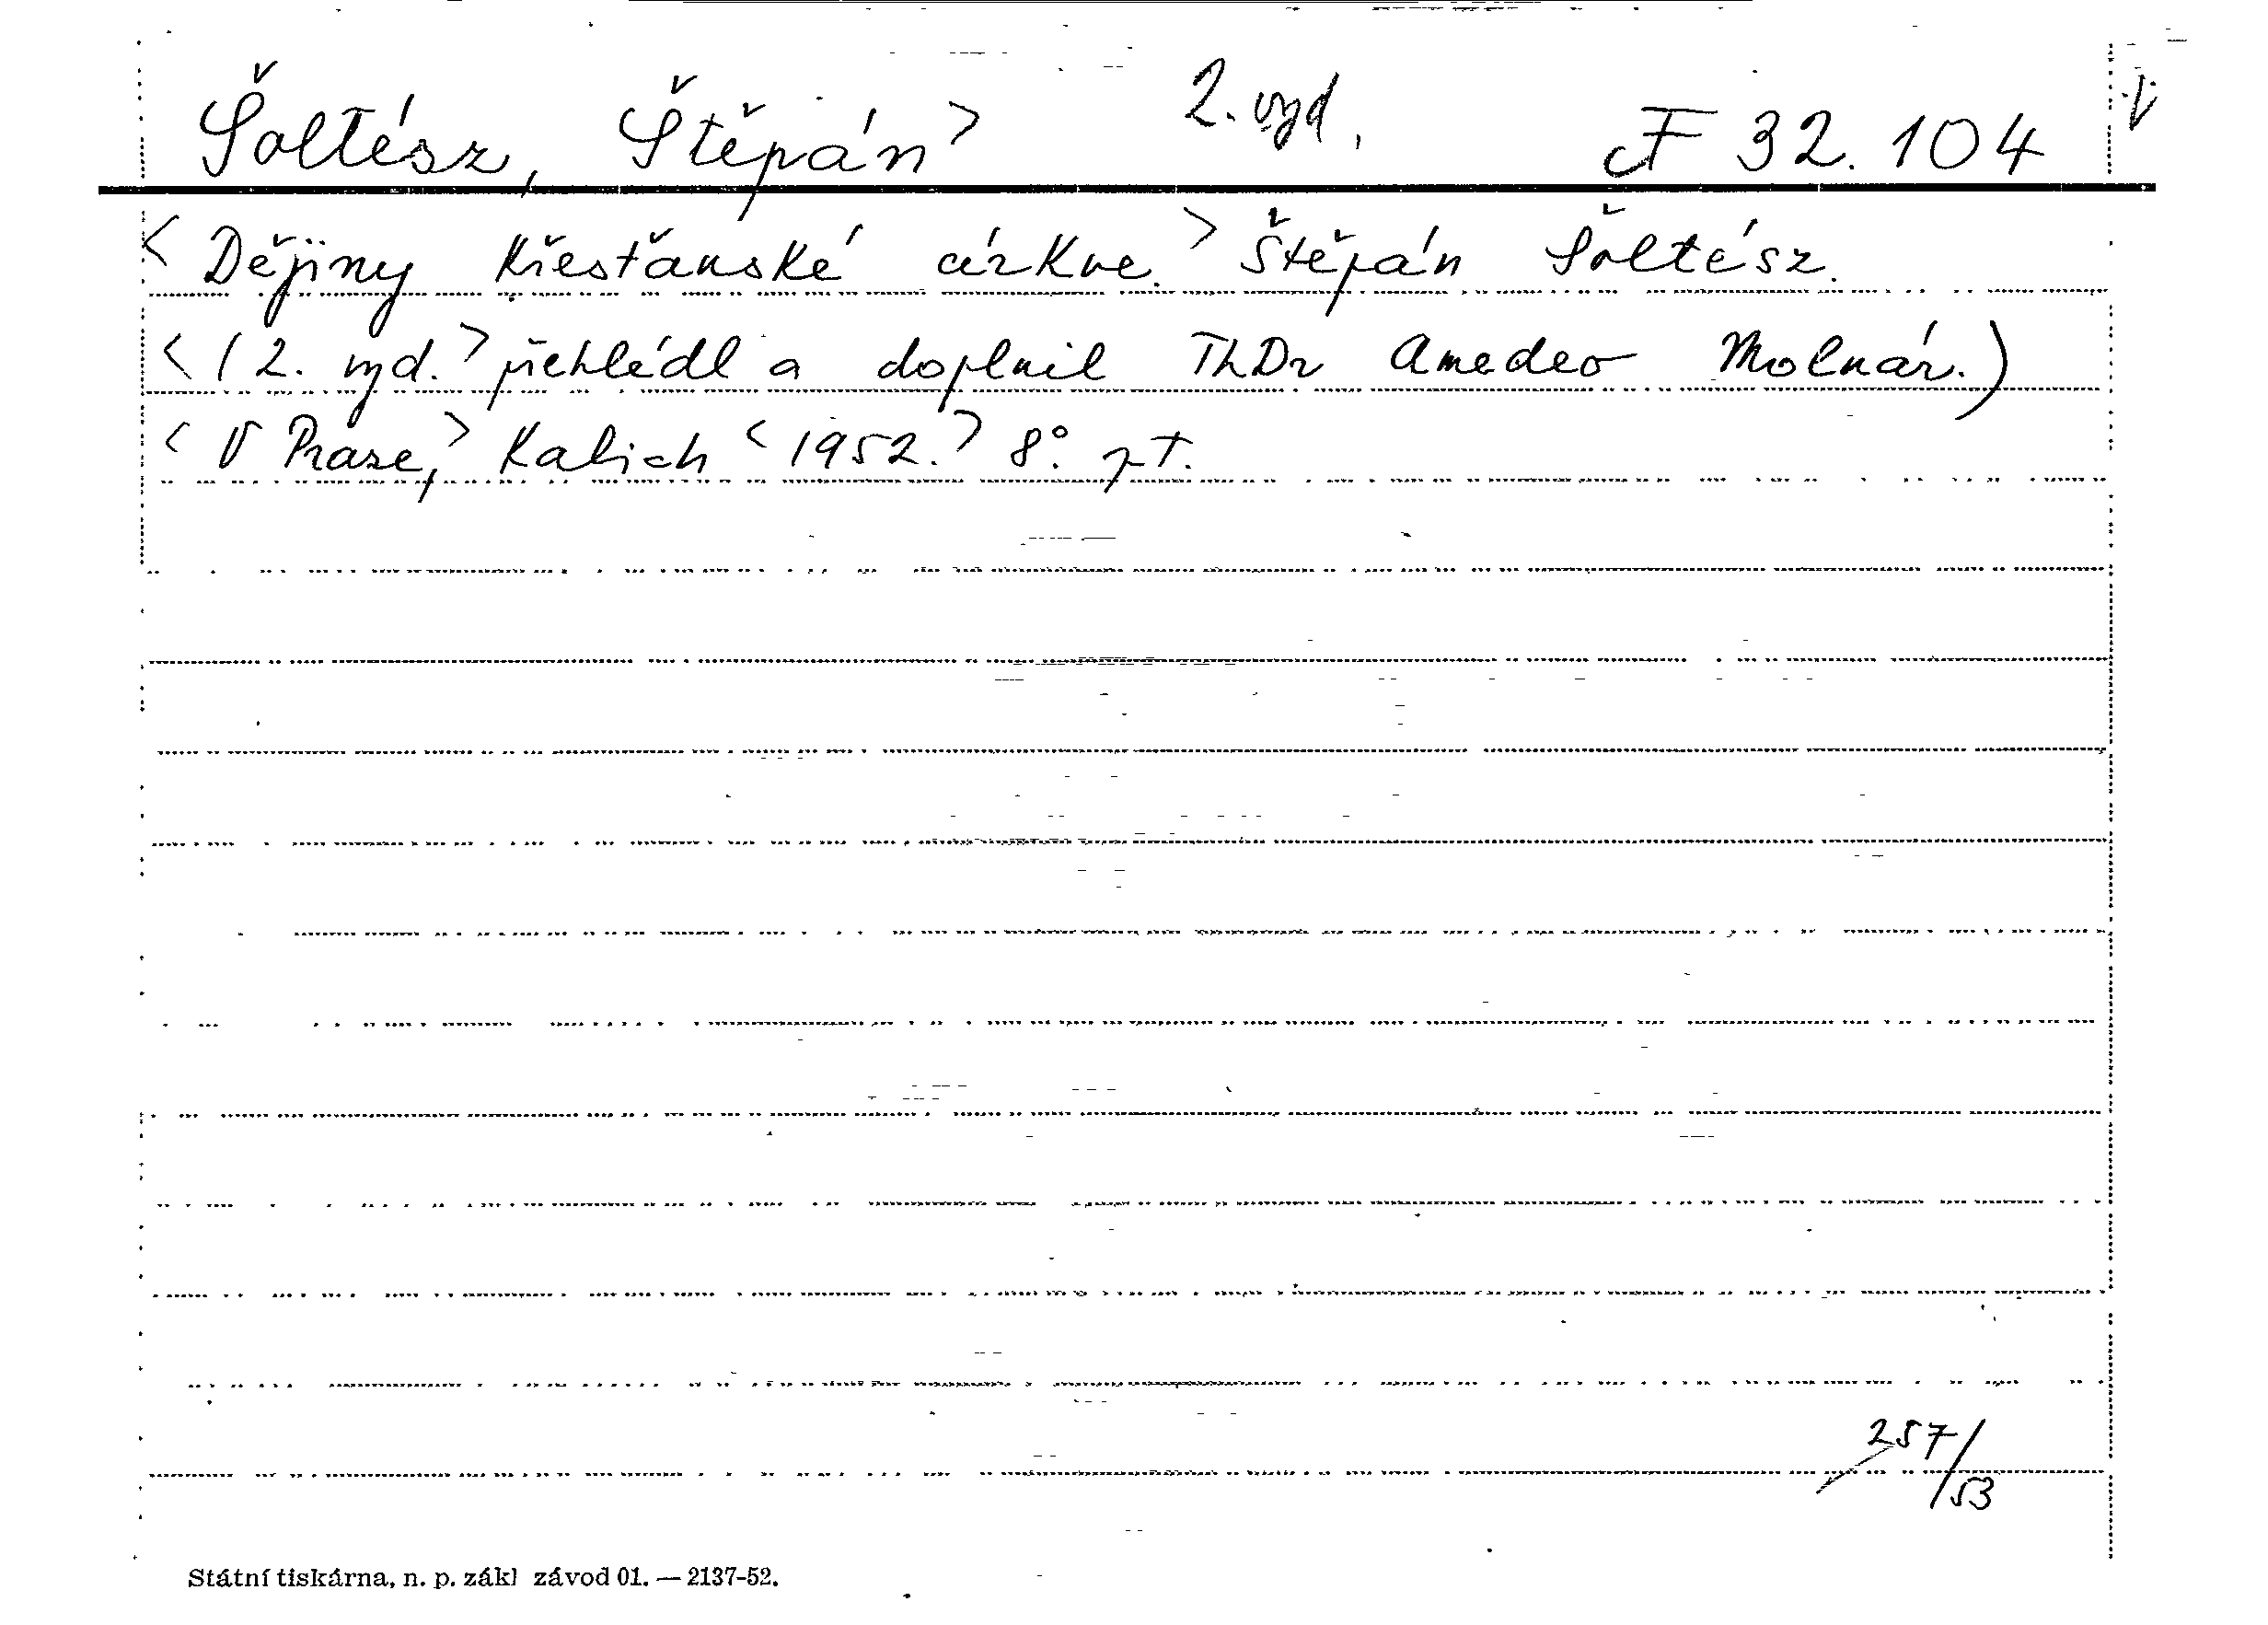 Šoltész, Štěpán> 2. vyd. F 32.104
<Dějiny křesťanské církve.> Štěpán Šoltész.
<(2. vyd.> přehlédl a doplnil ThDr Amedeo Molnár.)
<V Praze,> Kalich <1952.> 8°. pt.
257/53
Státní tiskárna, n. p. zákl závod 01. — 2137-52.